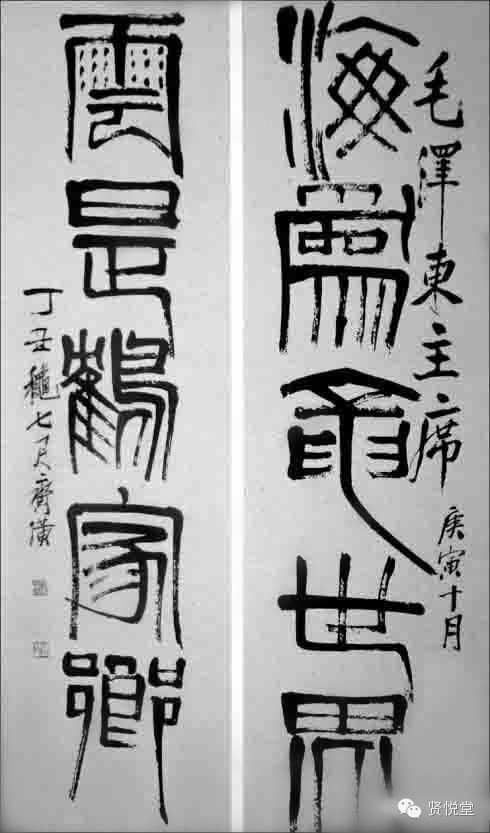 毛澤東主席
庚寅十月
海爲龍世界
雲是鶴家鄉
丁丑穐七月齊璜
贤悦堂